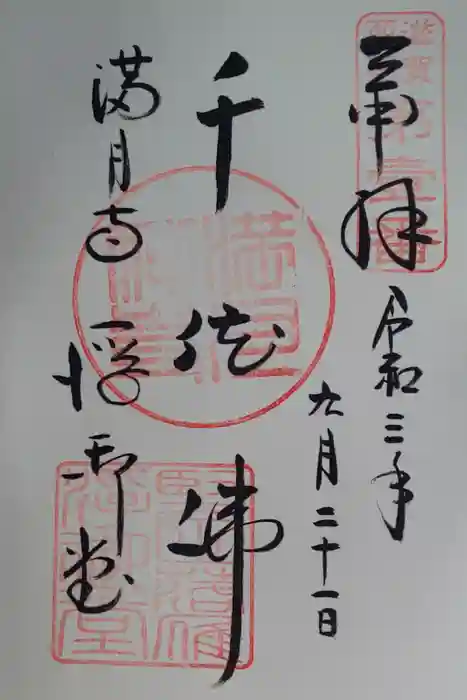 奉拝
令和三年
九月二十一日
千体佛
満月寺 浮御堂
第壹番